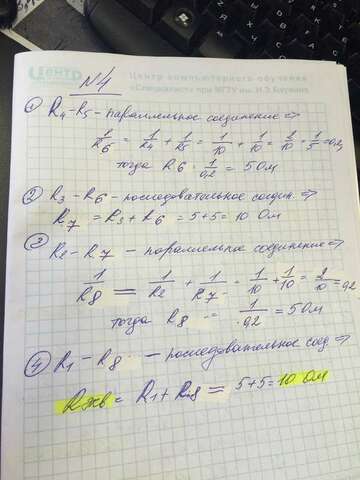 центр
Центр компьютерного обучения
«Специалист» при МГТУ им. Н.Э. Баумана
N4
① R4 – R5 – параллельное соединение ⇒
1/R6 = 1/R4 + 1/R5 = 1/10 + 1/10 = 2/10 = 1/5 = 0,2
тогда R6 = 1/0,2 = 5 Ом
② R3 – R6 – последовательное соедин. ⇒
R7 = R3 + R6 = 5+5 = 10 Ом
③ R2 – R7 – параллельное соединение ⇒
1/R8 = 1/R2 + 1/R7 = 1/10 + 1/10 = 2/10 = 0,2
тогда R8 = 1/0,2 = 5 Ом
④ R1 – R8 – последовательное соед. ⇒
Rэкв = R1 + R8 = 5+5 = 10 Ом